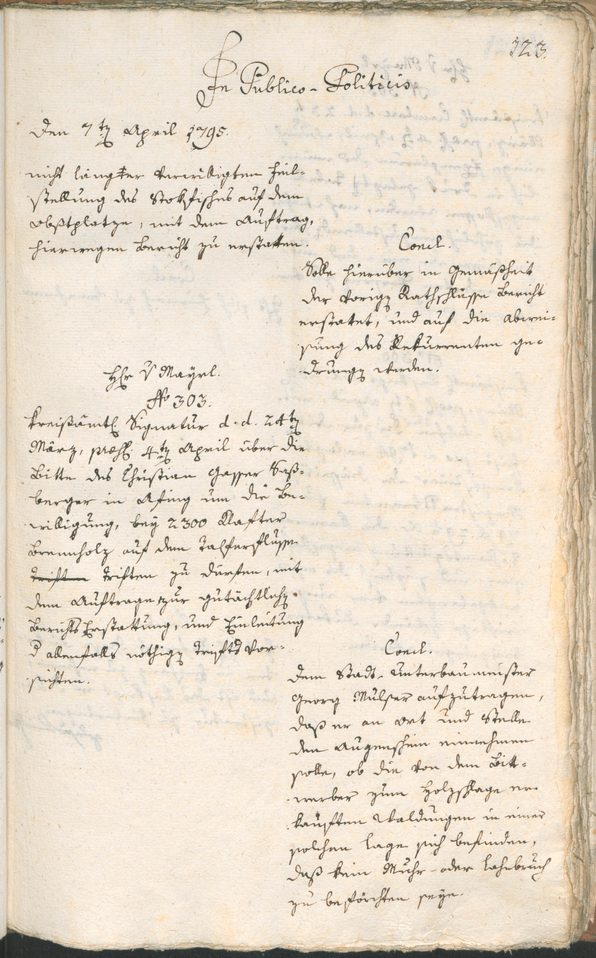 323.
In Publico-Politicis
Den 7ten April 1795.
nicht länger verwilligten Feil-
stellung des Stokfisches auf dem
Obstplatze, mit dem Auftrag,
hierwegen Bericht zu erstatten.
Concl.
Solle hierüber in Gemäßheit
der vorigen Rathschlüsse Bericht
erstattet, und auf die Abwei-
sung des Rekurrenten ge-
drungen werden.
Hr v Mayrl.
No 303.
Kreißämtl Signatur d. d. 24ten
März, præs. 4ten April über die
Bitte des Christian Gasser
berger in Afing um die Be-
willigung, bey 2300 Klafter
Brennholz auf dem Talferflusse
triften triften zu dürfen, mit
dem Auftrage zur gutächtlichen
Berichts Erstattung, und Einleitung
d allenfalls nöthigen Vor-
sichten.
Concl.
Dem Stadt-Unterbaumeister
Georg Mulser aufzutragen,
daß er an Ort und Stelle
den Augenschein einnehmen
solle, ob die von dem Bitt-
werber zum Holzschlage er-
kauften Waldungen in einer
solchen Lage sich befinden,
daß kein Muhr- oder Lahnbruch
zu beförchten seye.